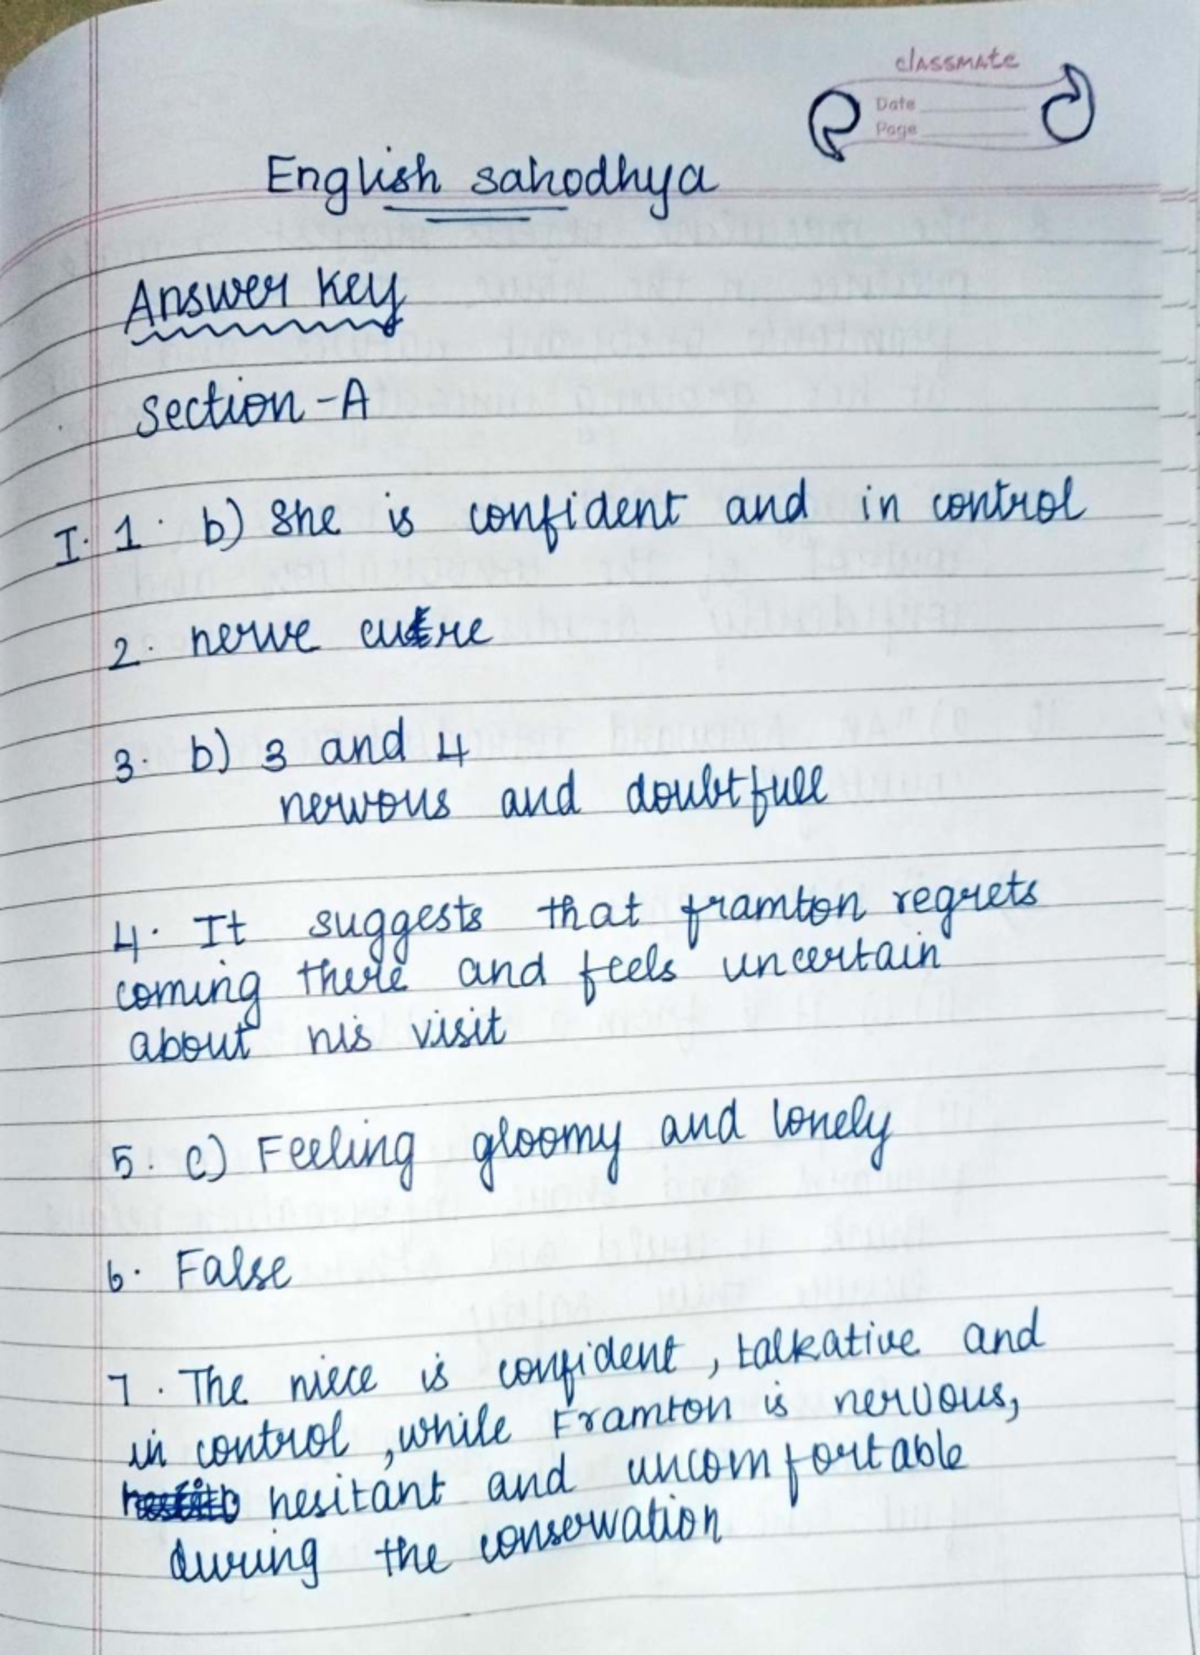 classmate
Date
Page
English sahodhya
Answer key
Section - A
I. 1. b) She is confident and in control
2. nerve cure
3. b) 3 and 4
nervous and doubtfull
4. It suggests that framton regrets
coming there and feels uncertain
about his visit
5. c) Feeling gloomy and lonely
6. False
7. The niece is confident, talkative and
in control, while Framton is nervous,
hesitant and uncomfortable
during the conservation